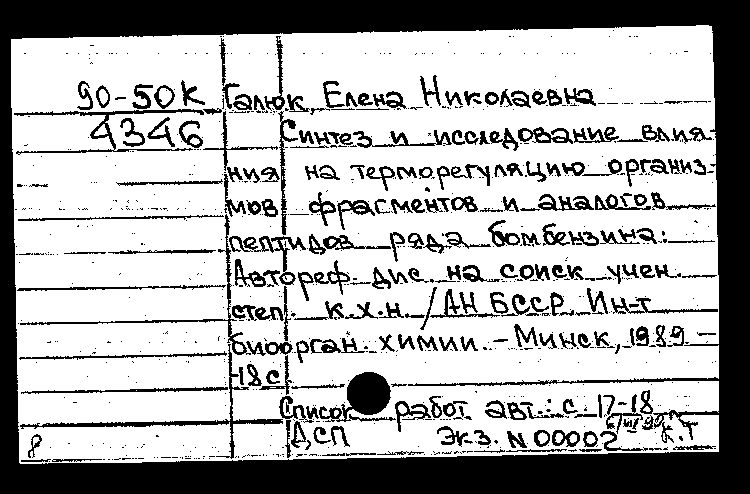 90-50К Галюк, Елена Николаевна
4346 Синтез и исследование влия-
ния на терморегуляцию организ-
мов фрагментов и аналогов
пептидов ряда бомбензина:
Автореф. дис. на соиск учен.
степ. к.х.н. /АН БССР. Ин-т
биоорган. химии. - Минск, 1989 -
-18 с.
Список работ авт.: с. 17-18
ДСП Экз. N 00002
8